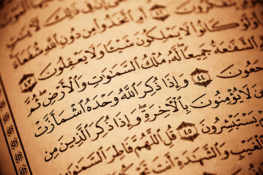 ٱتَّخَذُوا۟ مِن دُونِ ٱللَّهِ شُفَعَآءَ
كَانُوا۟ لَا يَمْلِكُونَ شَيْـًٔا وَلَا يَعْقِلُونَ ٤٣
ٱلشَّفَٰعَةُ جَمِيعًا لَّهُۥ مُلْكُ ٱلسَّمَٰوَٰتِ وَٱلْأَرْضِ ثُمَّ
٤٤ وَإِذَا ذُكِرَ ٱللَّهُ وَحْدَهُ ٱشْمَأَزَّتْ
لَا يُؤْمِنُونَ بِٱلْءَاخِرَةِ وَإِذَا ذُكِرَ ٱلَّذِينَ مِن
يَسْتَبْشِرُونَ ٤٥ قُلِ ٱللَّهُمَّ فَاطِرَ ٱلسَّمَٰوَٰتِ
ٱلْغَيْبِ وَٱلشَّهَٰدَةِ أَنتَ